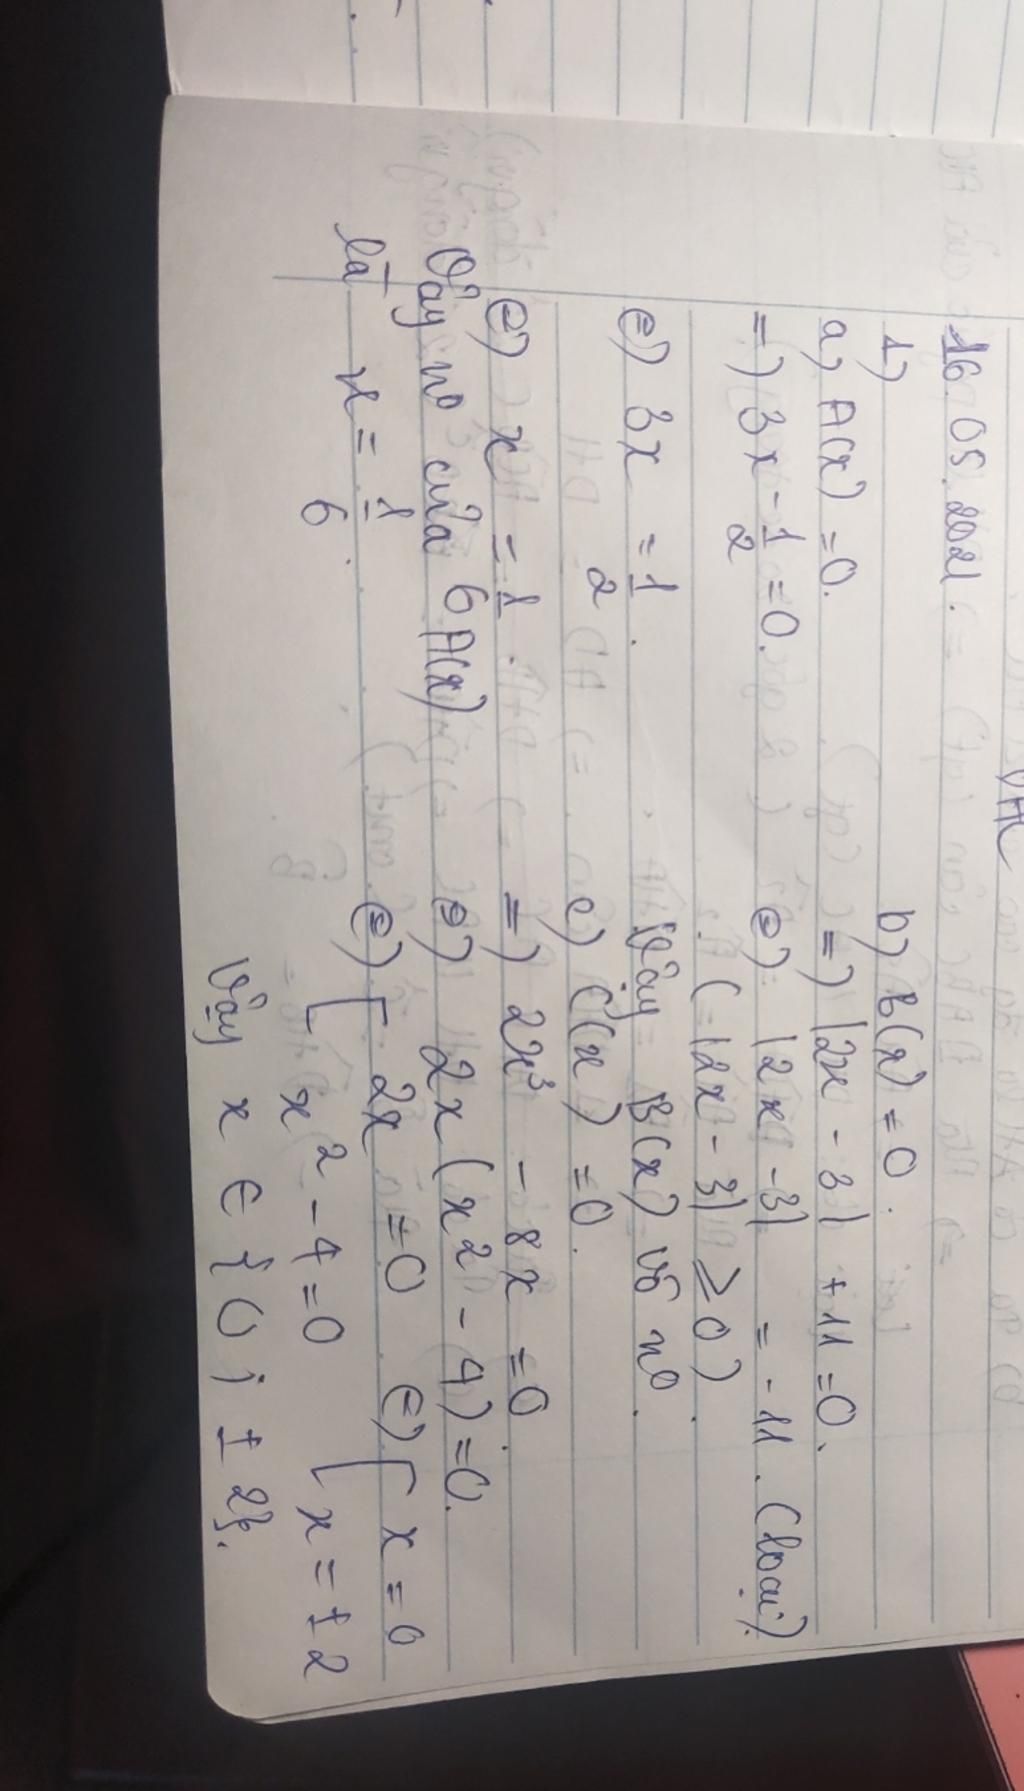 16.05.2021.
1)
a) A(x) = 0.
=) 3x - 1/2 = 0.
(=) 3x = 1/2.
(=) x = 1/6.
Vậy n° của A(x)
là x = 1/6.
b) B(x) = 0.
=) |2x - 3| + 11 = 0.
(=) |2x - 3| = -11. (loại).
(|2x - 3| ≥ 0).
Vậy B(x) vô n°.
c) C(x) = 0.
=) 2x³ - 8x = 0.
(=) 2x(x² - 4) = 0.
(=) [ 2x = 0 (=) [ x = 0
x² - 4 = 0 x = ± 2
Vậy x ∈ {0; ± 2}.